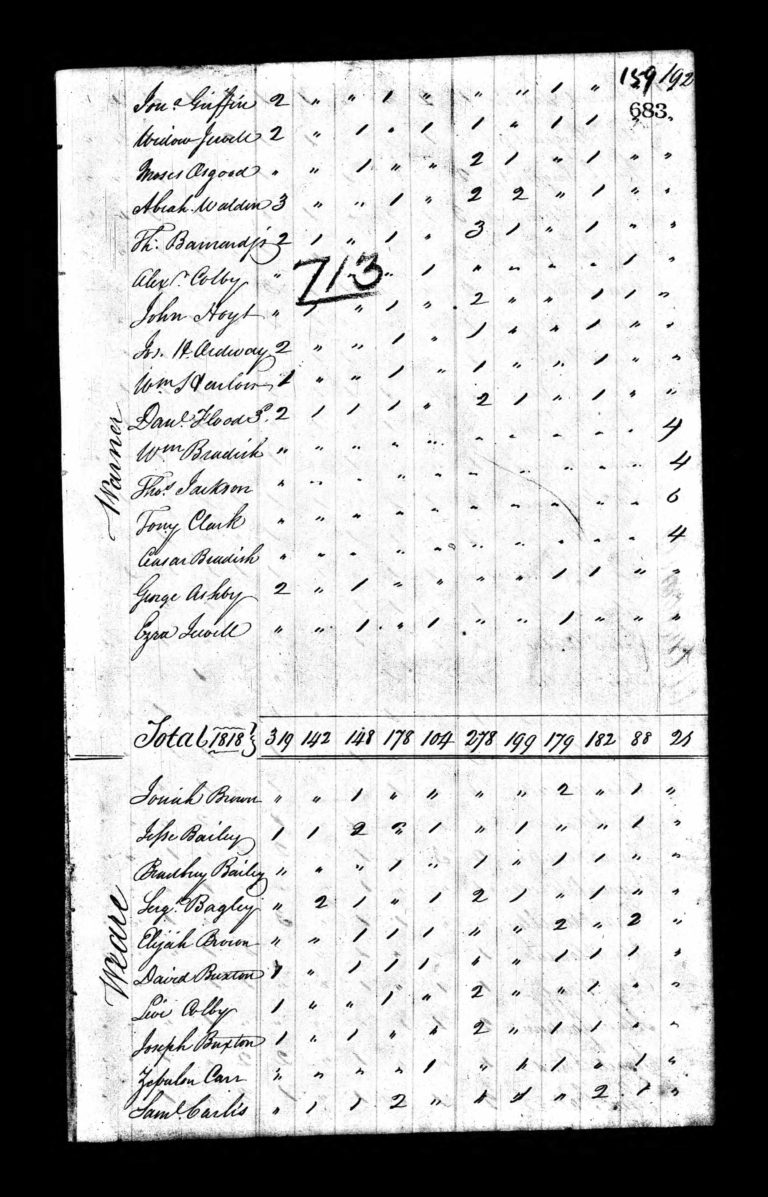 159 192
683.
Jonᵃ Griffin 2 " " 1 " " " 1 "
Widow Jewell 2 " 1 " 1 1 " 1 1 " "
Moses Osgood " " 1 " " 2 1 " 1 " "
Abiah Waldin 3 " " 1 " 2 2 " 1 " "
Th: Barnard jr 2 1 " 1 " 3 1 " 1 " "
713
Alexr. Colby " " " 1 " " " " 1 "
John Hoyt " 1 " 1 " 2 " " 1 1 "
Js. H. Ordway 2 " " 1 " 1 " " 1 " "
Wm 1 " " 1 " 1 " " 1 " "
Danl. Flood 3d. 2 1 1 1 " 2 1 " 1 " "
Warner
Wm Bradish " " " " " " " " " " 4
Thos Jackson " " " " " " " " " " 4
Tony Clark " " " " " " " " " " 6
Ceasar Bradish " " " " " " " " " " 4
George Ashby 2 " 1 " " " " 1 1 " "
Ezra Jewell " " 1 " 1 " " 1 " " "
Total {1818} 319 142 148 178 104 278 199 179 182 88 25
Josiah Brown " " 1 " " " " 2 " 1 "
Jesse Bailey 1 1 2 " 1 " 1 " " 1 "
Bradbury Bailey " " " 1 " 1 " 1 1 " "
Weare
Bagley " 2 1 " 1 2 1 " 1 " "
Elijah Brown " " 1 1 1 " " 2 " 2 "
David Buxton 1 " 1 1 1 " " 1 1 1 "
Levi Colby 1 " " 1 " 2 " " 1 " "
Joseph Buxton 1 " 1 " " 2 " 1 1 " "
Zebulon Carr " " " " 1 " " 1 " 1 "
Saml Carlis " 1 1 2 " " 1 " 2 1 "